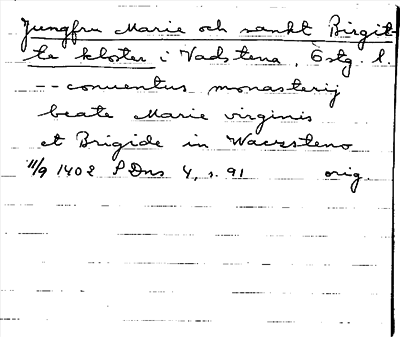 Jungfru Marie och sankt Birgit-
te kloster i Vadstena, Östg. l.
-- conuentus monasterij
beate Marie virginis
et Brigide in Waczsteno
11/9 1402 SDns 4, s. 91 orig.